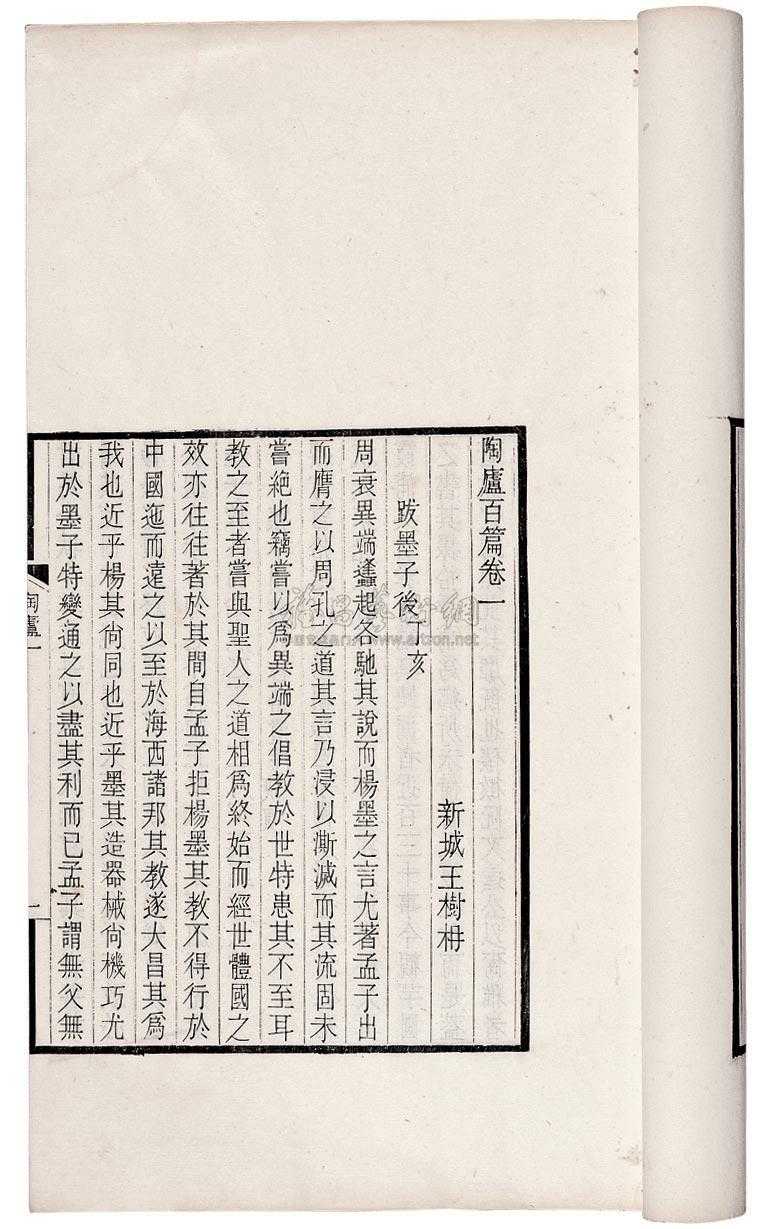 陶廬百篇卷一
新城王樹枏
跋墨子後 亥
周衰異端蠭起各馳其說而楊墨之言尤著孟子出
而膺之以周孔之道其言乃浸以澌滅而其流固未
嘗絶也竊嘗以爲異端之倡教於世特患其不至耳
教之至者嘗與聖人之道相爲終始而經世體國之
效亦往往著於其間自孟子拒楊墨其教不得行於
中國迤而遠之以至於海西諸邦其教遂大昌其爲
我也近乎楊其尙同也近乎墨其造器械尙機巧尤
出於墨子特變通之以盡其利而已孟子謂無父無
陶廬一
一
www.artron.net